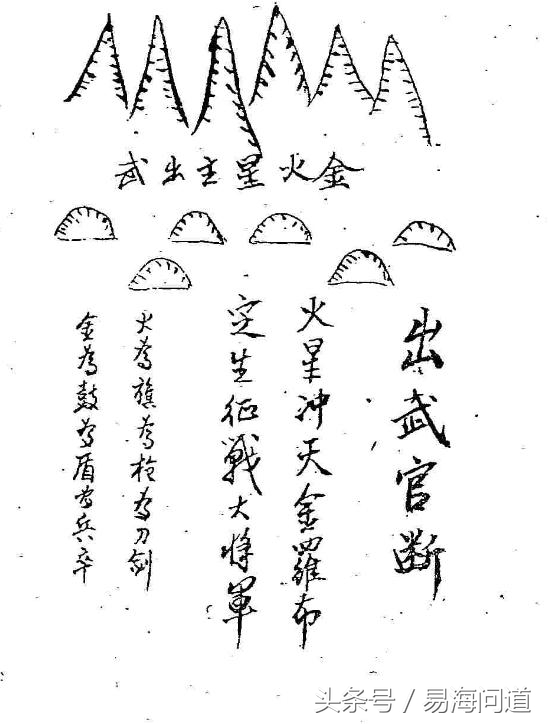 金火星主出武
出武官断
火星冲天金四羅布
定生征戰大将軍
火為旗為枪為刀剑
金為鼓為盾為兵卒
头条号 / 易海问道